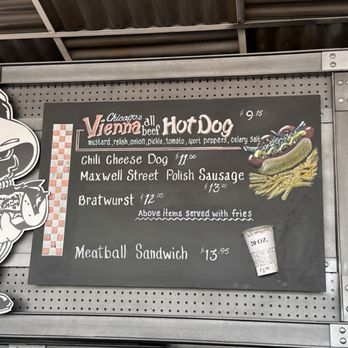 Chicago's
Vienna all beef Hot Dog $9.15
mustard, relish, onion, pickle, tomato, sport peppers, celery salt
Chili Cheese Dog $11.00
Maxwell Street Polish Sausage
$13.00
Bratwurst $12.00
Above items served with fries
Meatball Sandwich $13.95
20 OZ.